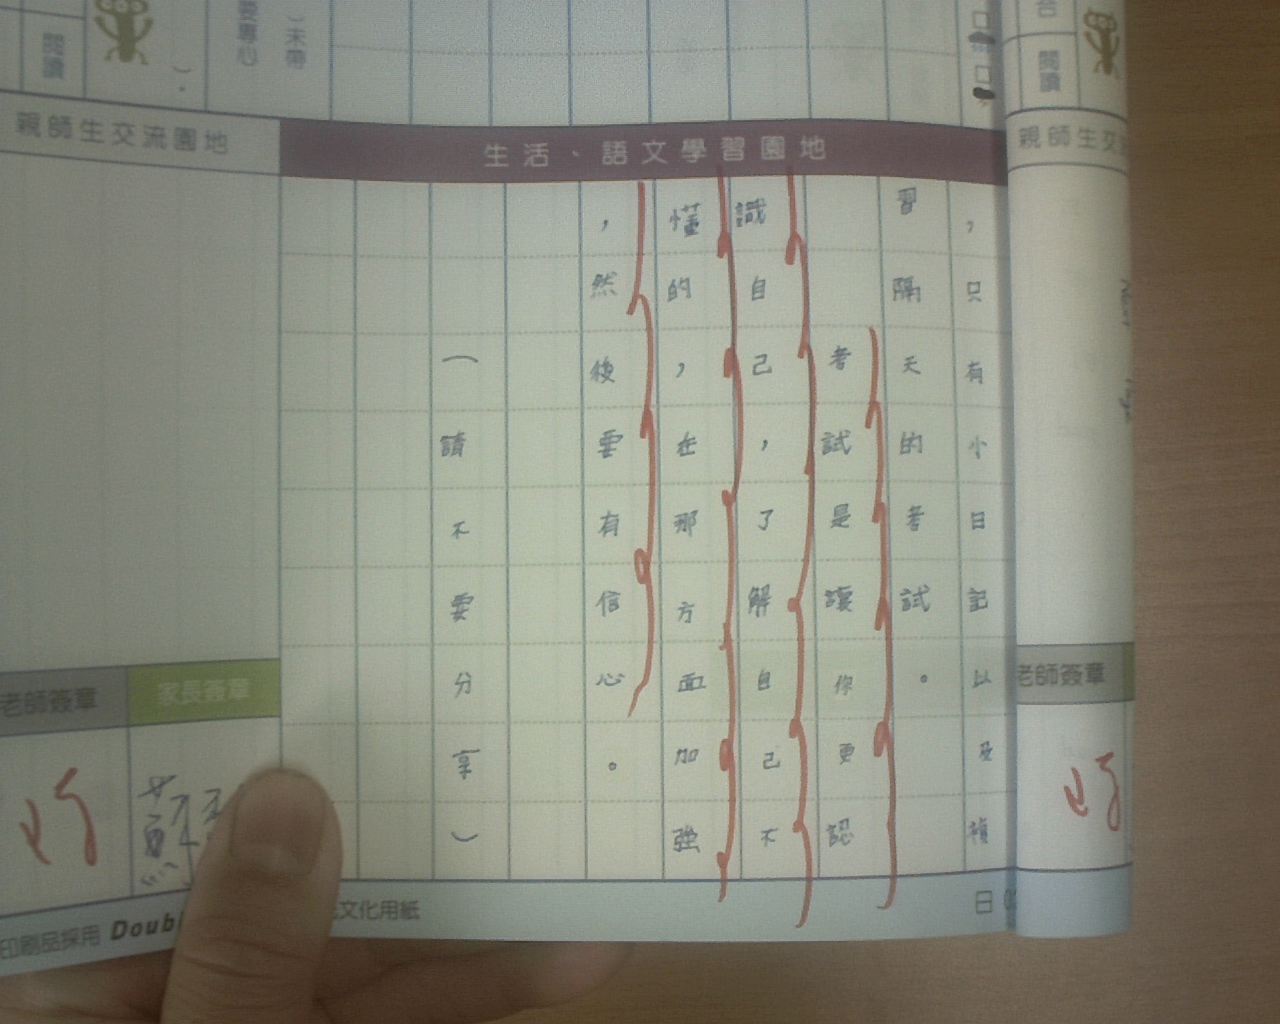 閱讀
要專心
）未帶
台
閱讀
親師生交流園地
生活、語文學習園地
親師生交
，只有小日記以及
習隔天的考試。
考試是讓你更認
識自己，了解自己不
懂的，在那方面加強
，然後要有信心。
（請不要分享）
老師簽章
家長簽章
老師簽章
印刷品採用 Doubl
文化用紙
日